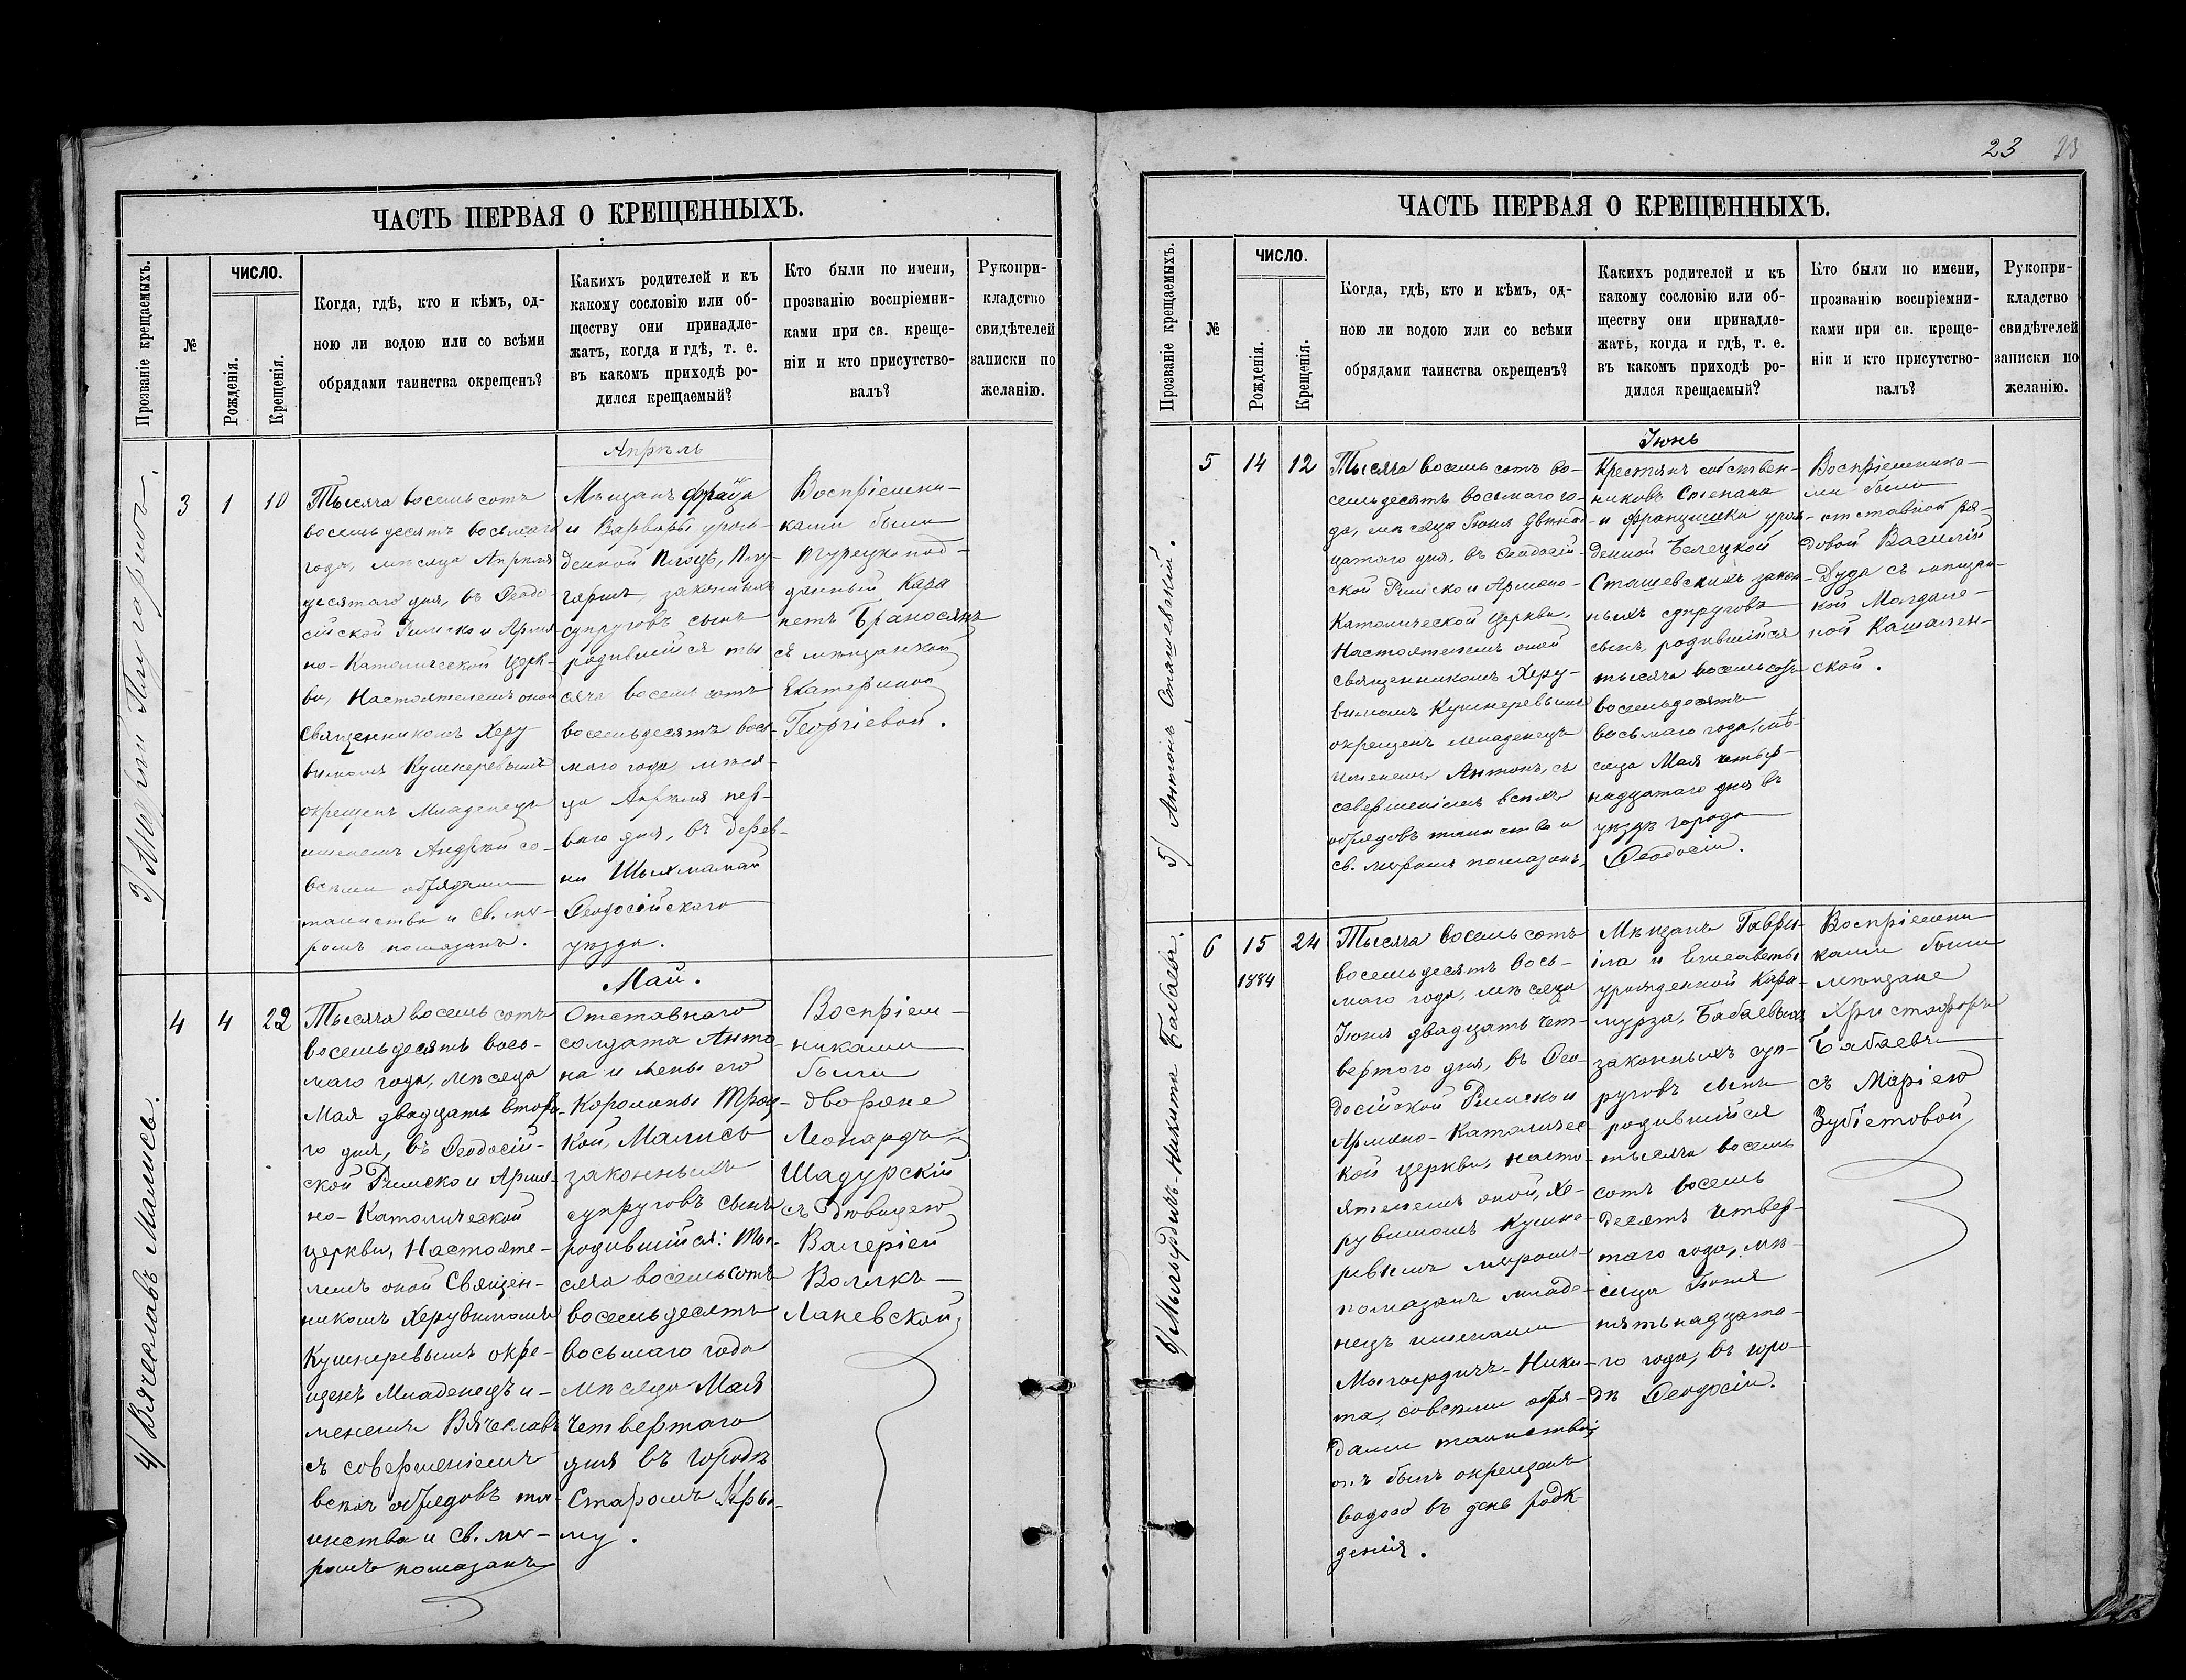 23 23
ЧАСТЬ ПЕРВАЯ О КРЕЩЕННЫХЪ.
Прозваніе крещаемыхъ.
№
ЧИСЛО.
Рожденія.
Крещенія.
Когда, гдѣ, кто и кѣмъ, од-
ною ли водою или со всѣми
обрядами таинства окрещенъ?
Какихъ родителей и къ
какому сословію или об-
ществу они принадле-
жатъ, когда и гдѣ, т. е.
въ какомъ приходѣ ро-
дился крещаемый?
Кто были по имени,
прозванію воспріемни-
ками при св. креще-
ніи и кто присутство-
валъ?
Рукопри-
кладство
свидѣтелей
записки по
желанію.
Апрѣль
3/ Андрей
3
1
10
Тысяча восемьсотъ
восемьдесятъ восьмаго
года, мѣсяца Апрѣля
десятаго дня, въ Ѳеодо-
сійской Римско и Армя-
но-Католической церк-
ви, Настоятелемъ оной
Священникомъ Херу
вимомъ Кушнеревымъ
окрещенъ Младенецъ
именемъ Андрей со
всѣми обрядами
таинства и Св. мѵ-
ромъ помазанъ.
Мѣщанъ Франца
и Варвары урож-
денной
законныхъ
супруговъ сынъ
родившійся ты
сяча восемьсотъ
восемьдесятъ вось-
маго года мѣся-
ца Апрѣля пер-
ваго дня, въ дерев-
ни Шыхмамай
Ѳеодосійскаго
уѣзда.
Воспріемни-
ками были
Турецко под-
данный Кара
петъ Браносянъ
съ мѣщанкой
Екатериной
Георгіевой.
Май.
4/ Вячеславъ Мались.
4
4
22
Тысяча восемьсотъ
восемьдесятъ вось-
маго года, мѣсяца
Мая двадцать втора-
го дня, въ Ѳеодосій-
ской Римско и Армя-
но-Католической
церкви, Настояте-
лемъ оной Священ-
никомъ Херувимомъ
Кушнеревымъ окре-
щенъ Младенецъ и-
менемъ Вячеславъ
съ совершеніемъ
всѣхъ обрядовъ та-
инства и Св. мѵ-
ромъ помазанъ
Отставнаго
солдата Анто-
на и жены его
Королины
Мались
законныхъ
супруговъ сынъ
родившійся: ты-
сяча восемьсотъ
восемьдесятъ
восьмаго года
мѣсяца Мая
четвертаго
дня въ городѣ
Старомъ Кры-
му.
Воспріем-
никами
были
дворяне
Леонардъ
Шадурскій
съ дѣвицею
Валеріей
Волкъ-
Ланевской
ЧАСТЬ ПЕРВАЯ О КРЕЩЕННЫХЪ.
Прозваніе крещаемыхъ.
№
ЧИСЛО.
Рожденія.
Крещенія.
Когда, гдѣ, кто и кѣмъ, од-
ною ли водою или со всѣми
обрядами таинства окрещенъ?
Какихъ родителей и къ
какому сословію или об-
ществу они принадле-
жатъ, когда и гдѣ, т. е.
въ какомъ приходѣ ро-
дился крещаемый?
Кто были по имени,
прозванію воспріемни-
ками при св. креще-
ніи и кто присутство-
валъ?
Рукопри-
кладство
свидѣтелей
записки по
желанію.
Іюнь
5/ Антонъ Сташевскій.
5
14
12
Тысяча восемьсотъ во-
семьдесятъ восьмаго го-
да, мѣсяца Іюня двѣнад-
цатаго дня, въ Ѳеодосій-
ской Римско и Армяно-
Католической Церкви,
Настоятелемъ оной
Священникомъ Херу-
вимомъ Кушнеревымъ
окрещенъ младенецъ
именемъ Антонъ, съ
совершеніемъ всѣхъ
обрядовъ таинства и
св. мѵромъ помазанъ.
Крестьянъ собствен-
никовъ Степана
и Францишки урож-
денной Белецкой
Сташевскихъ закон-
ныхъ супруговъ
сынъ, родившійся
тысяча восемьсотъ
восемьдесятъ
восьмаго года, мѣ-
сяца Мая четыр-
надцатаго дня въ
уѣздѣ города
Ѳеодосіи.
Воспріемника-
ми были
отставной ря-
довой Василій
Дуда съ мѣщан-
кой Магдале-
ной Кашален-
ской.
6/ Мыгырдичъ-Никита Бабаевъ.
6
15
1884
24
Тысяча восемьсотъ
восемьдесятъ вось-
маго года, мѣсяца
Іюня двадцать чет-
вертого дня, въ Ѳео-
досійской Римско и
Армяно-Католичес-
кой церкви, насто-
ятелемъ оной, Хе-
рувимомъ Кушне-
ревымъ мѵромъ
помазанъ младе-
нецъ именами
Мыгырдичъ-Ники-
та, совсѣми обря-
дами таинства,
онъ былъ окрещенъ
водою въ день рож-
денія.
Мѣщанъ Гаври-
іла и Елисаветы
урожденной Кара-
мурза, Бабаевыхъ
законныхъ суп-
руговъ сынъ
родившійся
тысяча восемь
сотъ восемь
десятъ четвер-
таго года, мѣ-
сяца Іюня
пятьнадцата-
го года, въ горо-
дѣ Ѳеодосіи.
Воспріемни
ками были
мѣщане
Христофоръ
Бабаевъ
съ Маріею
Зубіетовой